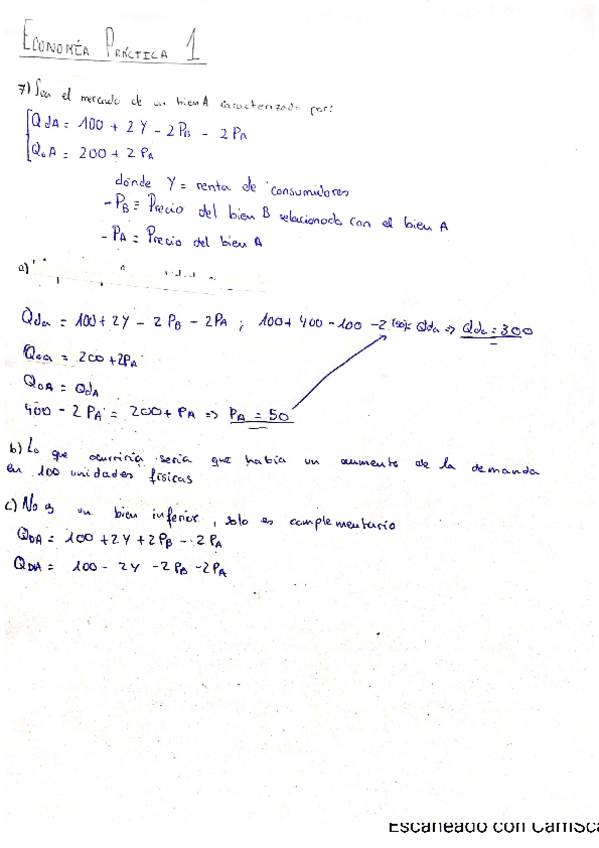 ECONOMÍA PRÁCTICA 1
7) Sea el mercado de un bien A caracterizado por:
QdA = 100 + 2Y - 2PB - 2PA
QoA = 200 + 2PA
dónde Y = renta de consumidores
- PB ≡ Precio del bien B relacionado con el bien A
- PA = Precio del bien A
a)
Qda = 100 + 2Y - 2PB - 2PA ; 100 + 400 - 100 - 2(50) = Qda => Qda = 300
Qoa = 200 + 2PA
QoA = QdA
400 - 2PA = 200 + PA => PA = 50
b) Lo que ocurriría sería que había un aumento de la demanda
en 100 unidades físicas
c) No es un bien inferior, solo es complementario
QDA = 100 + 2Y + 2PB - 2PA
QDA = 100 - 2Y - 2PB - 2PA
Escaneado con CamSca